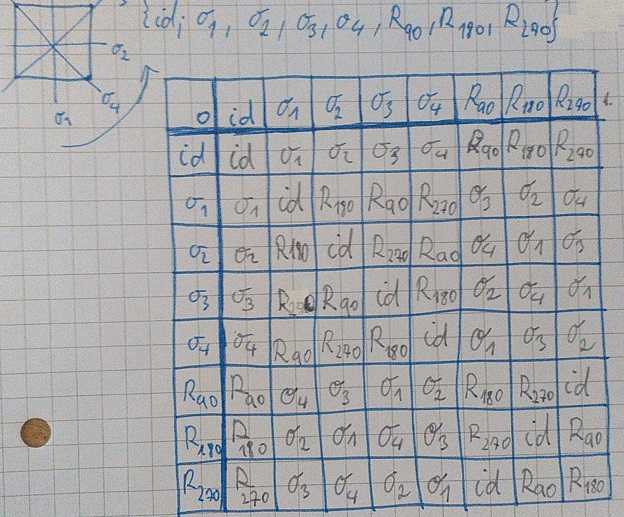 {id, σ1, σ2, σ3, σ4, R90, R180, R270}
σ2
σ4
σ1
o id σ1 σ2 σ3 σ4 R90 R180 R270
id id σ1 σ2 σ3 σ4 R90 R180 R270
σ1 σ1 id R180 R90 R270 σ3 σ2 σ4
σ2 σ2 R180 id R270 R90 σ4 σ1 σ3
σ3 σ3 R270 R90 id R180 σ2 σ4 σ1
σ4 σ4 R90 R270 R180 id σ1 σ3 σ2
R90 R90 σ4 σ3 σ1 σ2 R180 R270 id
R180 R180 σ2 σ1 σ4 σ3 R270 id R90
R270 R270 σ3 σ4 σ2 σ1 id R90 R180